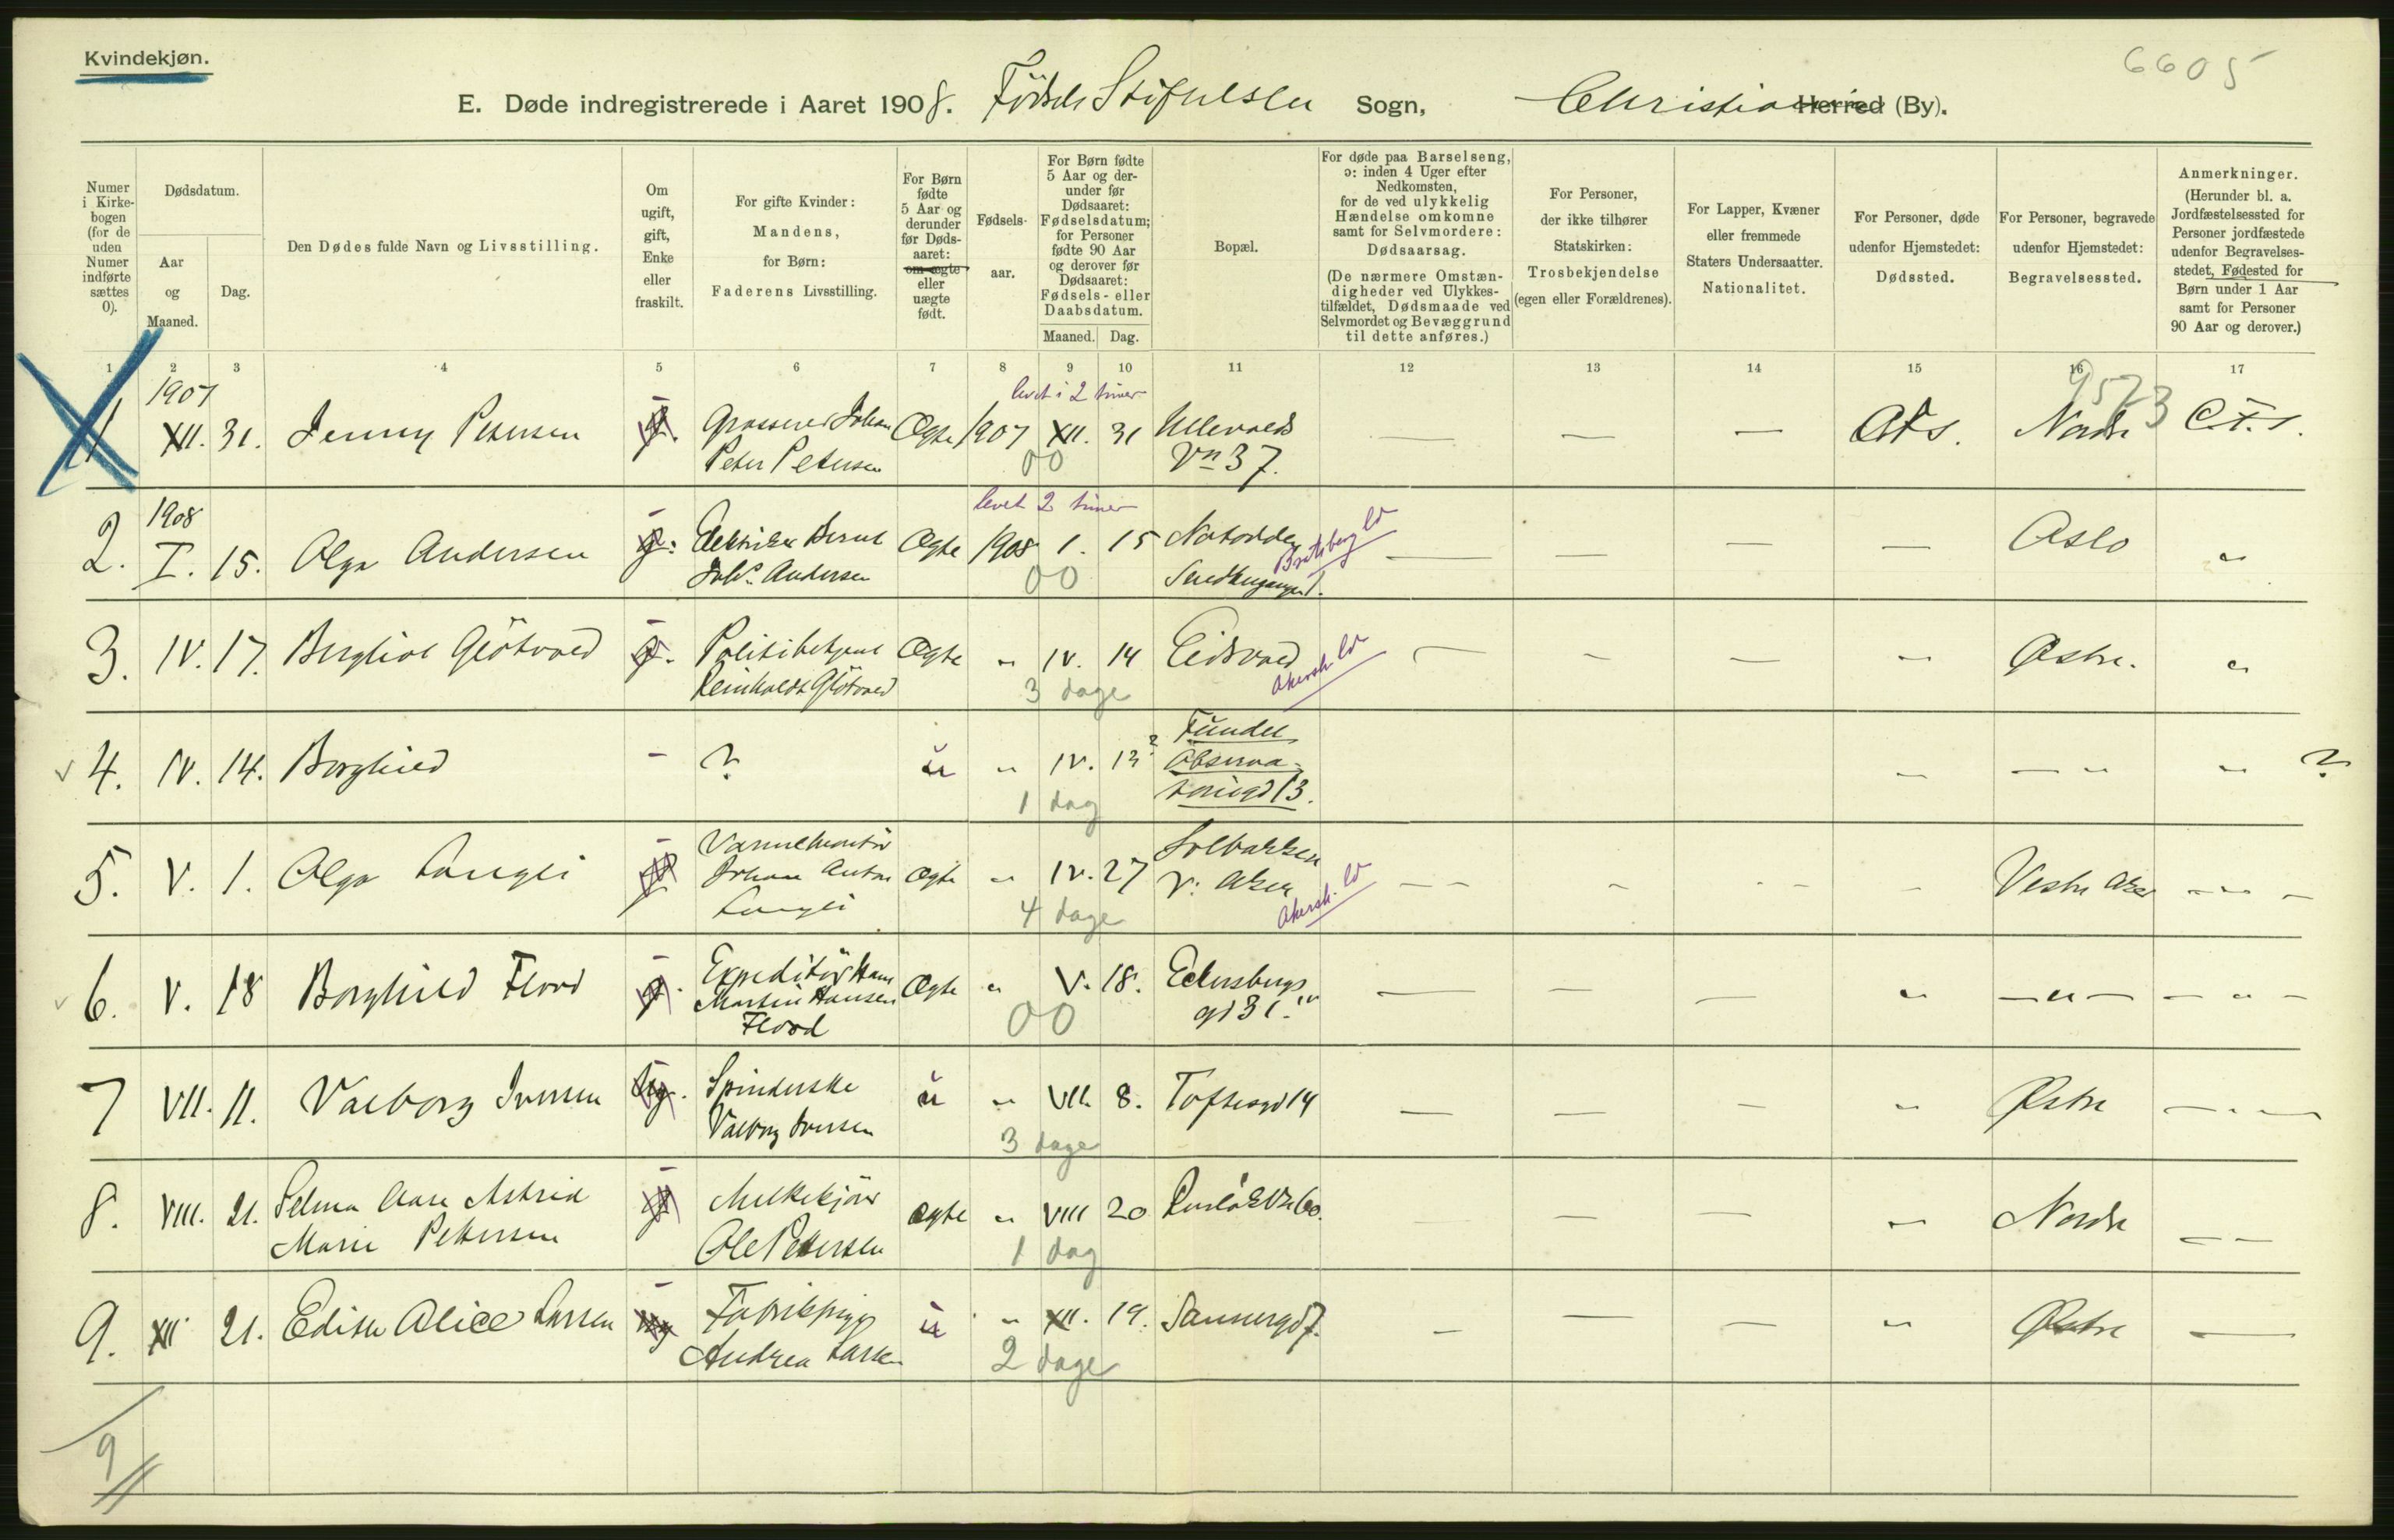 Kvindekjøn.
6605
E. Døde indregistrerede i Aaret 1908. Födsels Stiftelsen Sogn, Christiania Herred (By).
Numer i Kirkebogen (for de uden Numer indførte sættes 0).
Dødsdatum.
Aar og Maaned.
Dag.
Den Dødes fulde Navn og Livsstilling.
Om ugift, gift, Enke eller fraskilt.
For gifte Kvinder: Mandens, for Børn: Faderens Livsstilling.
For Børn fødte 5 Aar og derunder før Dødsaaret: om ægte eller uægte født.
Fødselsaar.
For Børn fødte 5 Aar og derunder før Dødsaaret: Fødselsdatum; for Personer fødte 90 Aar og derover før Dødsaaret: Fødsels- eller Daabsdatum.
Maaned. Dag.
Bopæl.
For døde paa Barselseng, ɔ: inden 4 Uger efter Nedkomsten, for de ved ulykkelig Hændelse omkomne samt for Selvmordere: Dødsaarsag.
(De nærmere Omstændigheder ved Ulykkestilfældet, Dødsmaade ved Selvmordet og Bevæggrund til dette anføres.)
For Personer, der ikke tilhører Statskirken: Trosbekjendelse (egen eller Forældrenes).
For Lapper, Kvæner eller fremmede Staters Undersaatter. Nationalitet.
For Personer, døde udenfor Hjemstedet: Dødssted.
For Personer, begravede udenfor Hjemstedet: Begravelsessted.
Anmerkninger.
(Herunder bl. a. Jordfæstelsessted for Personer jordfæstede udenfor Begravelsesstedet, Fødested for Børn under 1 Aar samt for Personer 90 Aar og derover.)
1 2 3 4 5 6 7 8 9 10 11 12 13 14 15 16 17
1907 levet i 2 timer 9573
1 XII. 31. Jenny Petersen g. Grosserer Johan Ægte 1907 XII. 31 Ullevolds — — — Nordre
Peter Petersen 00 Vn 37.
1908 levet 2 timer
2. I. 15. Olga Andersen g. Elektriker Bernt Ægte 1908 I. 15 Notodden Bratsberg — — — — Oslo "
Johs. Andersen 00
3. IV. 17. Bergliot Glötvold g. Politibetjent Ægte " IV. 14 Eidsvold Akersh. — — — — Østre. "
Reinholdt Glötvold 3 dage
4. IV. 14. Borghild - ? u " IV. 13? Fundet — — " " ?
1 dag Observatoriegd 13.
5. V. 1. Olga Langli g Varmemontör Ægte " IV. 27 Solbakken — — - - - Vestre Aker — " —
Johan Anton 4 dage V. Aker Akersh.
Langli
6. V. 18 Borghild Flood g. Expeditör Hans Ægte " V. 18. Eilersbergs — — — " — " — — " —
Martin Hansen 00 gd 31. IV
Flood
7 VII. 11. Valborg Iversen ug. Spinderske u " VII. 8. Toftesgd 14 — — — " Østre — " —
Valborg Iversen 3 dage
8. VIII. 21. Selma Aase Astrid g Melkekjörer ægte " VIII 20 — — — " Nordre — —
Marie Pettersen Ole Pettersen 1 dag
9. XII 21. Edith Alice Larsen ug Fabrikpige u " XII. 19. Sannergd 7. — — — " Østre —
Andrea Larsen 2 dage
9